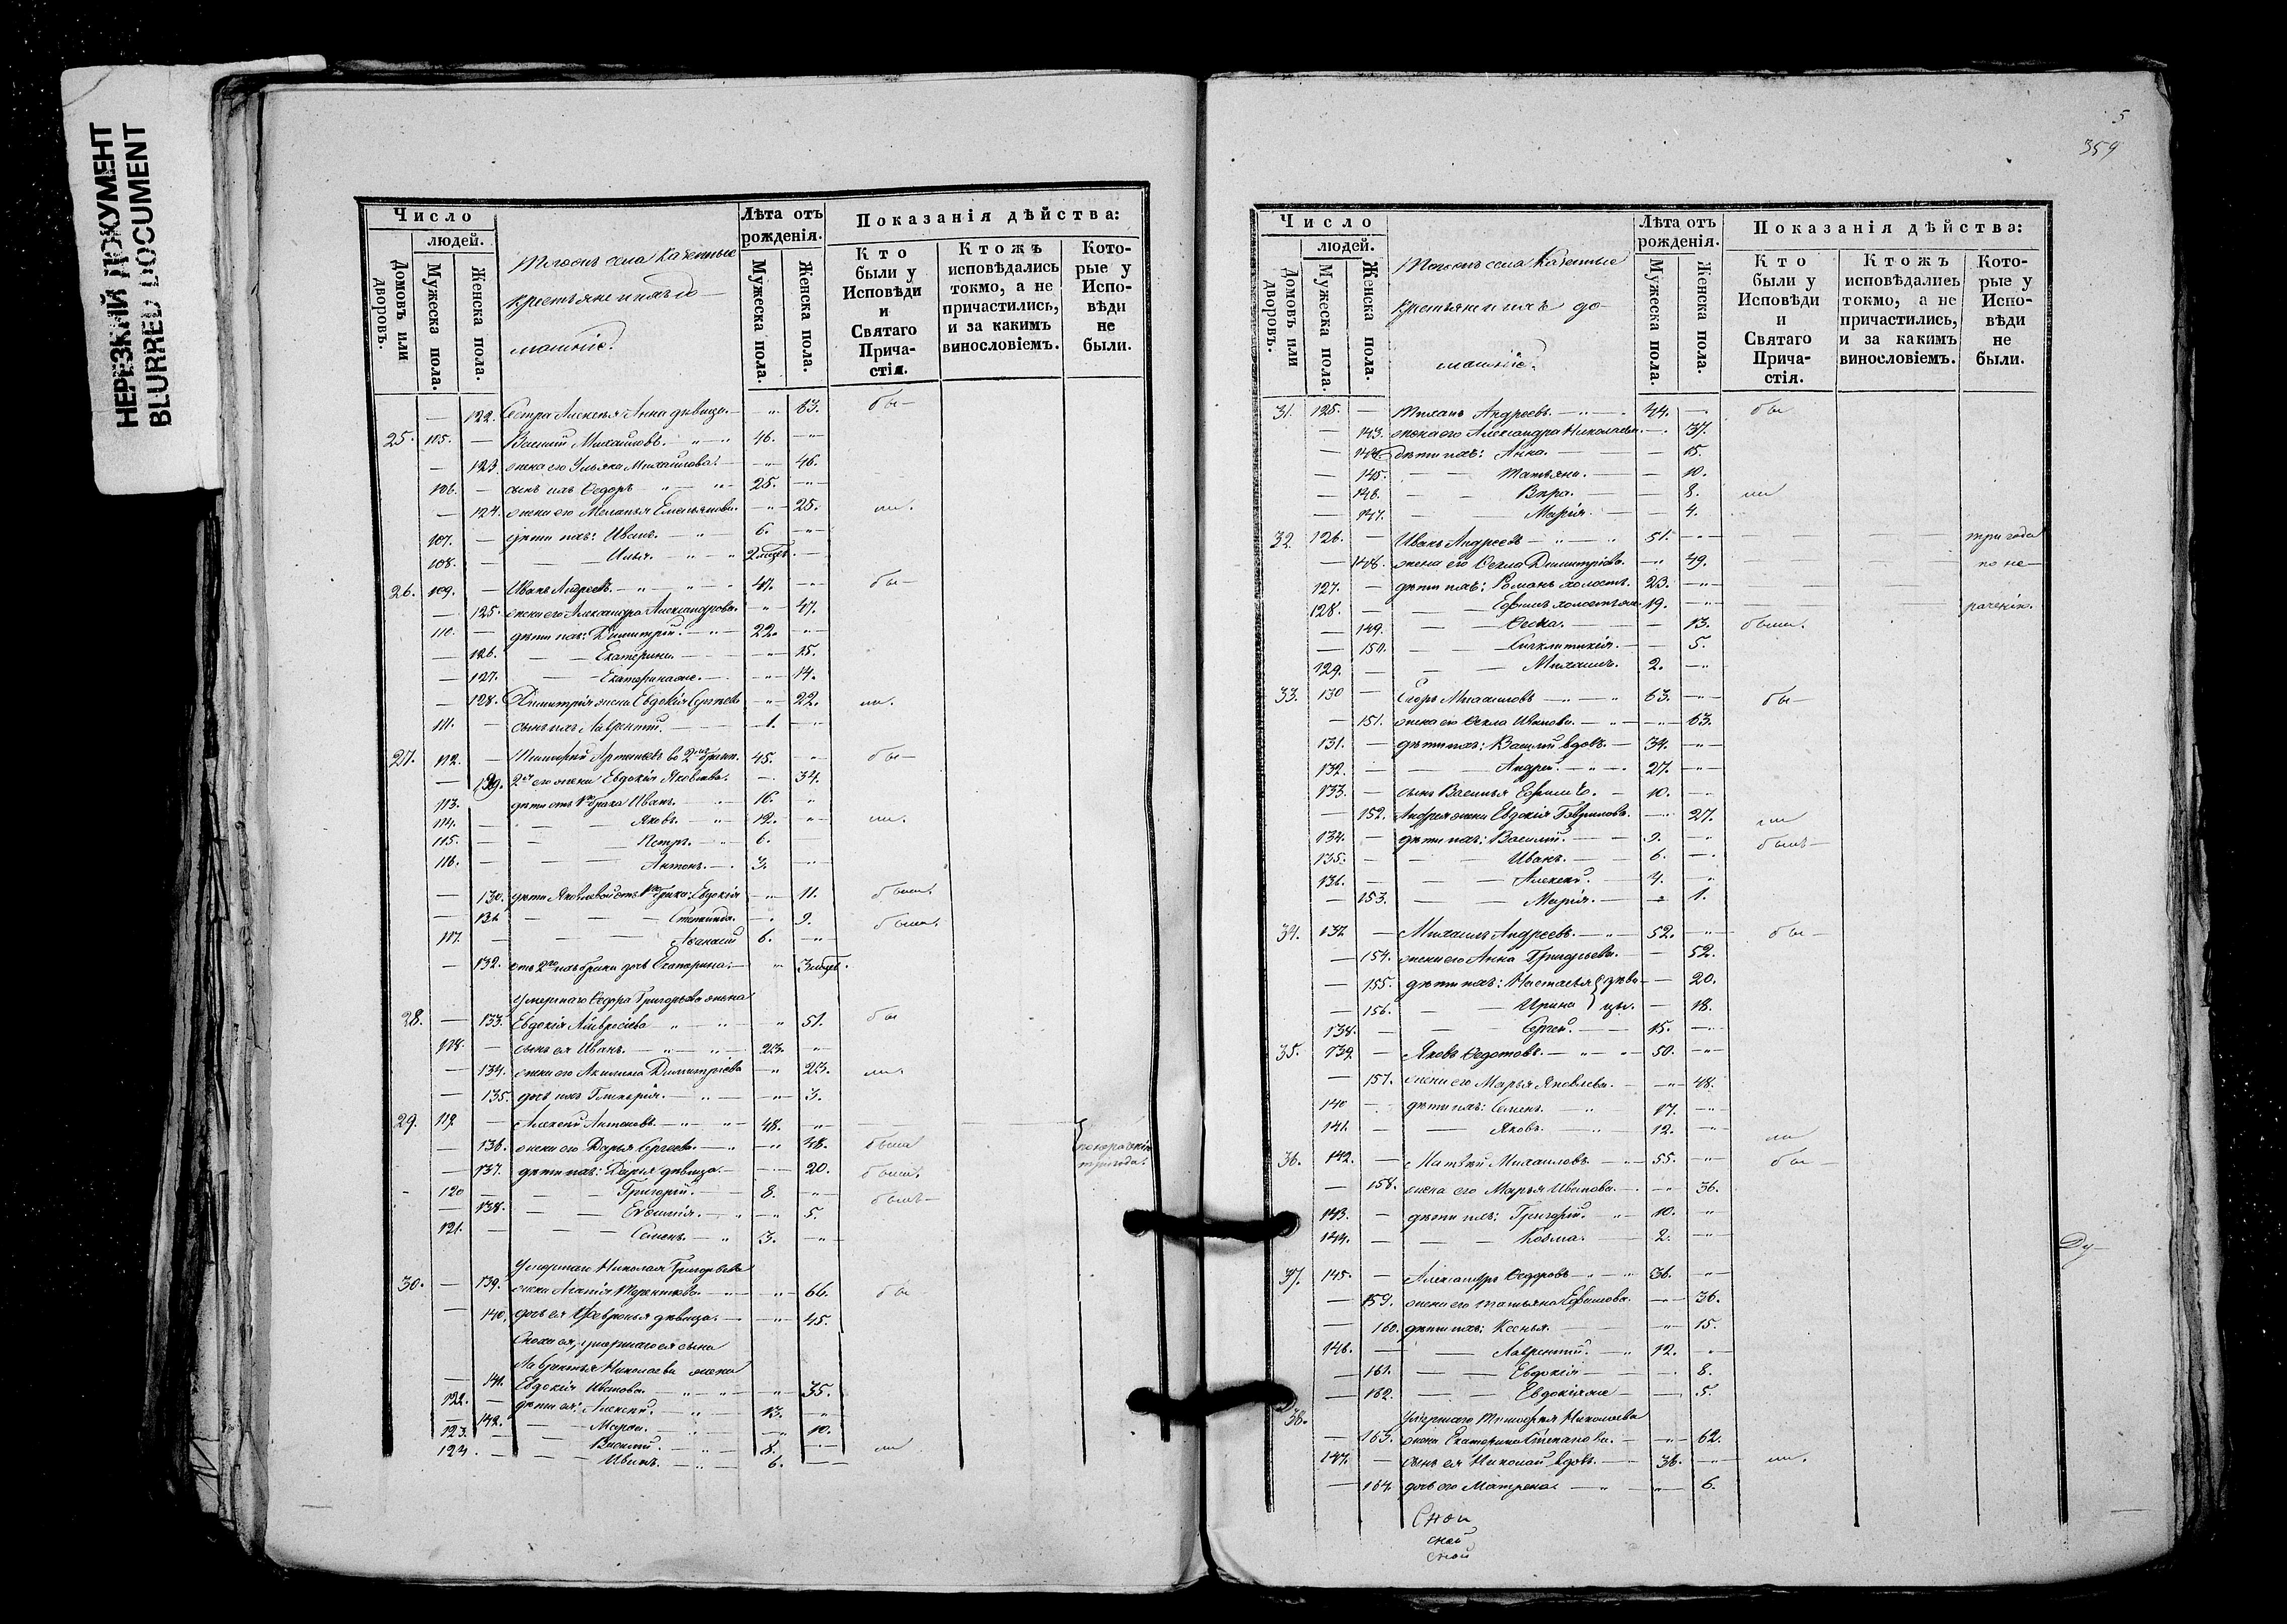 НЕРЕЗКИЙ ДОКУМЕНТ
BLURRED DOCUMENT
Число
людей.
Домовъ или дворовъ.
Мужеска пола.
Женска пола.
Тогожъ села Казенные
крестьяне и ихъ до-
машніе.
Лѣта отъ рожденія.
Мужеска пола.
Женска пола.
Показанія дѣйства:
Кто были у Исповѣди и Святаго Причастія.
Ктожъ исповѣдались токмо, а не причастились, и за какимъ винословіемъ.
Которые у Исповѣди не были.
— 122. Сестра Алексѣя Анна дѣвица. 63. бы—
25. 105. — Василій Михайловъ. 46.
— 123 жена его Ульяна Михайлова. 46.
106. — сынъ ихъ Ѳедоръ 25.
— 124. жена его Меланья Емельянова. 25. ли.
107. — дѣти ихъ: Иванъ. 6.
108. — Илья. 2 мѣсец.
26. 109. — Иванъ Андреевъ. 47. бы—
— 125. жена его Александра Александрова. 47.
110. — дѣти ихъ: Димитрій. 22.
— 126. Екатерина. 15.
— 127. Екатерина же. 14.
— 128. Димитрія жена Евдокія Сергѣева 22. ли.
111. — сынъ ихъ Лаврентій. 1.
27. 112. — Тимофей Артемьевъ во 2мъ бракѣ. 45. бы—
— 129. 2я его жена Евдокія Яковлева. 34.
113. дѣти отъ 1го брака Иванъ. 16.
114. — Яковъ. 12. ли.
115. — Петръ. 6.
116. — Антонъ. 3.
— 130. дѣти Яковлевой отъ 1го брака: Евдокія 11. была.
— 131 Степанида. 9. была.
117. — Аѳанасій 6.
— 132. отъ 2го ихъ брака дочь Екатерина. 3 мѣсец.
умершаго Ѳедора Григорьева жена
28. — 133. Евдокія Амвросіева 51. бы
118. — сынъ ея Иванъ. 23.
— 134. жена его Акилина Димитріева 23. ли.
— 135. дочь ихъ Гликерія. 3.
29. 119 — Алексѣй Антоновъ. 48.
— 136. жена его Дарья Сергеева. 48. была
по нераченію три года.
— 137. дѣти ихъ: Дарья дѣвица. 20. была.
120 — Григорій. 8. былъ—
— 138. Евѳимія. 5.
121. — Семенъ. 3.
Умершаго Николая Григорьева
30. — 139. жена Агаѳія Терентьева. 66. бы
— 140. дочь ея Ѳевронья дѣвица. 45.
Сноха ея, умершаго ея сына
Лаврентья Николаева жена
— 141. Евдокія Иванова. 35.
122. — дѣти ея: Алексѣй. 13.
— 142. Марѳа. 10.
123. — Василій. 8. ли
124. — Иванъ. 6.
5
359
Число
людей.
Домовъ или дворовъ.
Мужеска пола.
Женска пола.
Тогожъ села Казенные
крестьяне и ихъ до-
машніе.
Лѣта отъ рожденія.
Мужеска пола.
Женска пола.
Показанія дѣйства:
Кто были у Исповѣди и Святаго Причастія.
Ктожъ исповѣдались токмо, а не причастились, и за какимъ винословіемъ.
Которые у Исповѣди не были.
31. 125. — Андреевъ. 44. бы
— 143. жена его Александра Николаева. 37.
— 144. дѣти ихъ: Анна. 15.
— 145. Татьяна. 10.
— 146. Вѣра. 8. ли
— 147. Марія. 4.
32. 126. — Иванъ Андреевъ 51. три года
— 148. жена его Ѳекла Димитріева. 49. по не—
127. — дѣти ихъ: Романъ холостъ. 23.
128. — Ефимъ холостъ же 19. раченію.
— 149. 13. были.
— 150. Синклитикія. 5.
129. — Михаилъ. 2.
33. 130 — Егоръ Михаиловъ 63. бы—
— 151. жена его Ѳекла Иванова. 63.
131. — дѣти ихъ: Василій вдовъ. 34.
132. — Андрей. 27.
133. — сынъ Василья Ефимъ. 10.
— 152. Андрея жена Евдокія Гаврилова. 27. ли
134. — дѣти ихъ: Василій. 9. былъ—
135. — Иванъ. 6.
136. — Алексѣй. 4.
— 153. Марія. 1.
34. 137. — Михаилъ Андреевъ. 52. бы—
— 154. жена его Анна Григорьева. 52.
— 155. дѣти ихъ: Настасья } дѣви- 20.
— 156. Ирина } цы. 18.
138. — Сергей. 15.
35. 139. — Яковъ Ѳедотовъ. 50.
— 157. жена его Марья Яковлева. 48.
140 — дѣти ихъ: Семенъ. 17.
141. — Яковъ. 12. ли
36. 142. — Матѳей Михаиловъ. 55. бы—
— 158. жена его Марья Иванова. 36.
143. — дѣти ихъ: Григорій. 10.
144. — Козма. 2.
Ду—
37. 145. — Александръ Ѳедоровъ 36.
— 159. жена его Татьяна Ефимова. 36.
— 160. дѣти ихъ: Ксенья. 15.
146. — Лаврентій. 12.
— 161. Евдокія 8.
— 162. Евдокія же 5.
38. умершаго Тимофея Николаева
— 163. жена Екатерина Степанова. 62.
147. — сынъ ея Николай вдовъ. 36. ли.
— 164 дочь его Матрена. 6.